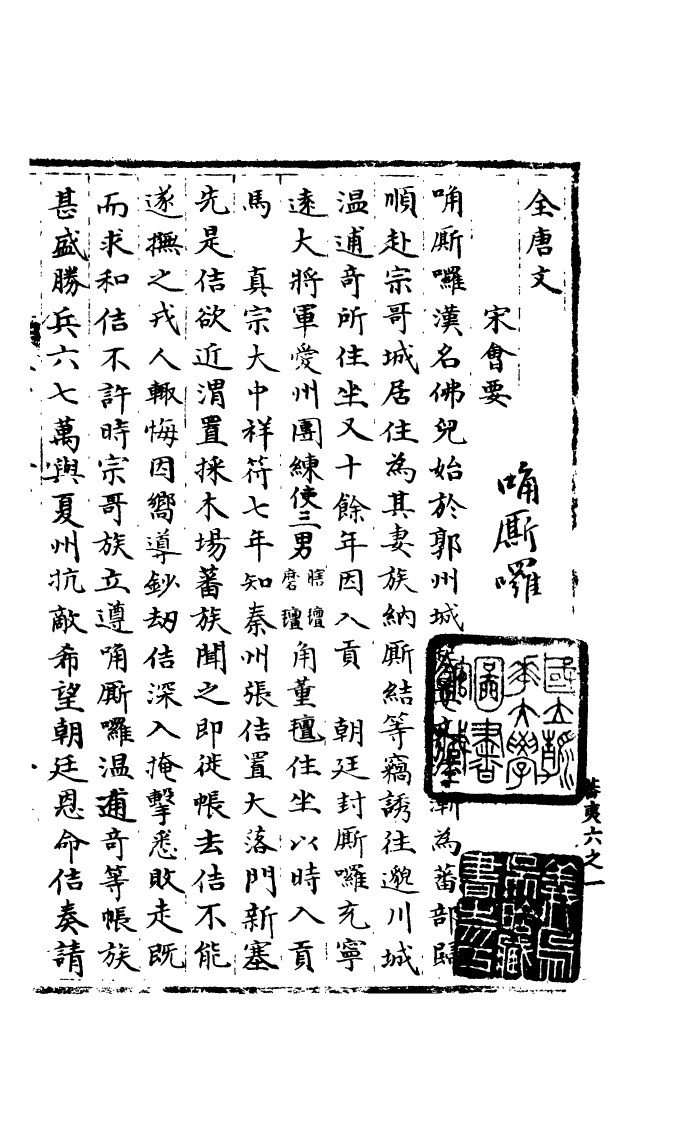 全唐文
宋會要
唃厮囉
唃厮囉漢名佛兒始於郭州城漸為蕃部歸
順赴宗哥城居住為其妻族納厮結等竊誘往邈川城
温逋奇所住坐又十餘年因入貢　朝廷封厮囉充寧
遠大將軍愛州團練使三男瞎㽃磨㽃角董㽃住坐以時入貢
馬　真宗大中祥符七年知秦州張佶置大落門新塞
先是佶欲近渭置採木場蕃族聞之即徙帳去佶不能
遂撫之戎人輙悔因嚮導鈔刼佶深入掩擊悉敗走既
而求和佶不許時宗哥族立遵唃厮囉温逋奇等帳族
甚盛勝兵六七萬與夏州抗敵希望朝廷恩命佶奏請
國立北平圖書館藏
蕃夷六之一